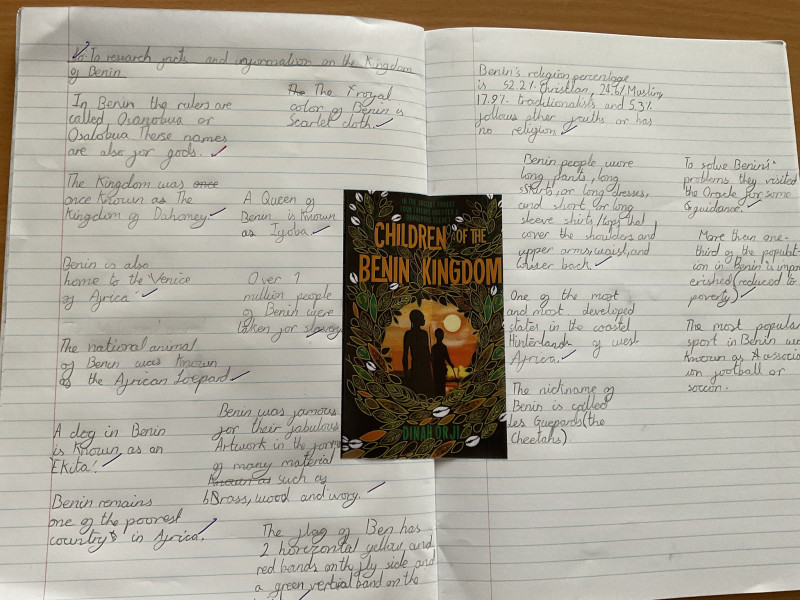 To research facts and information on the Kingdom
of Benin
In Benin the rulers are
called Osanobua or
Osalobua These names
are also for gods.
The The royal
color of Benin is
Scarlet cloth.
The Kingdom was once
once known as The
Kingdom of Dahomey
A Queen of
Benin is known
as Iyoba.
Benin is also
home to the 'Venice
of Africa'
Over 1
million people
of Benin were
taken for slavery
The national animal
of Benin was known
as the African Leopard
A dog in Benin
is known as an
Ekita!
Benin was famous
for their fabulous
Artwork in the form
of many material
known as such as
Brass, wood and ivory.
Benin remains
one of the poorest
country's in Africa.
The flag of Ben has
2 horizontal yellow and
red bands on the fly side and
a green vertical band on the
CHILDREN OF THE
BENIN KINGDOM
DINAH ORJI
Benin's religion percentage
is 52.2% Christian, 24.6% Muslim
17.9% traditionalists and 5.3%
follows other faiths or has
no religion
Benin people wore
long pants, long
skirts, or long dresses,
and short or long
sleeve shirts/tops that
cover the shoulders and
upper arms, waist, and
lower back
One of the most
and most developed
states in the coastal
Hinterland of west
Africa.
The nickname of
Benin is called
Les Guepards (the
Cheetahs)
To solve Benin's
problems they visited
the Oracle for some
guidance.
More than one-
third of the populat-
ion in Benin is impov
erished (reduced to
poverty)
The most popular
sport in Benin was
known as Associati
on football or
soccer.